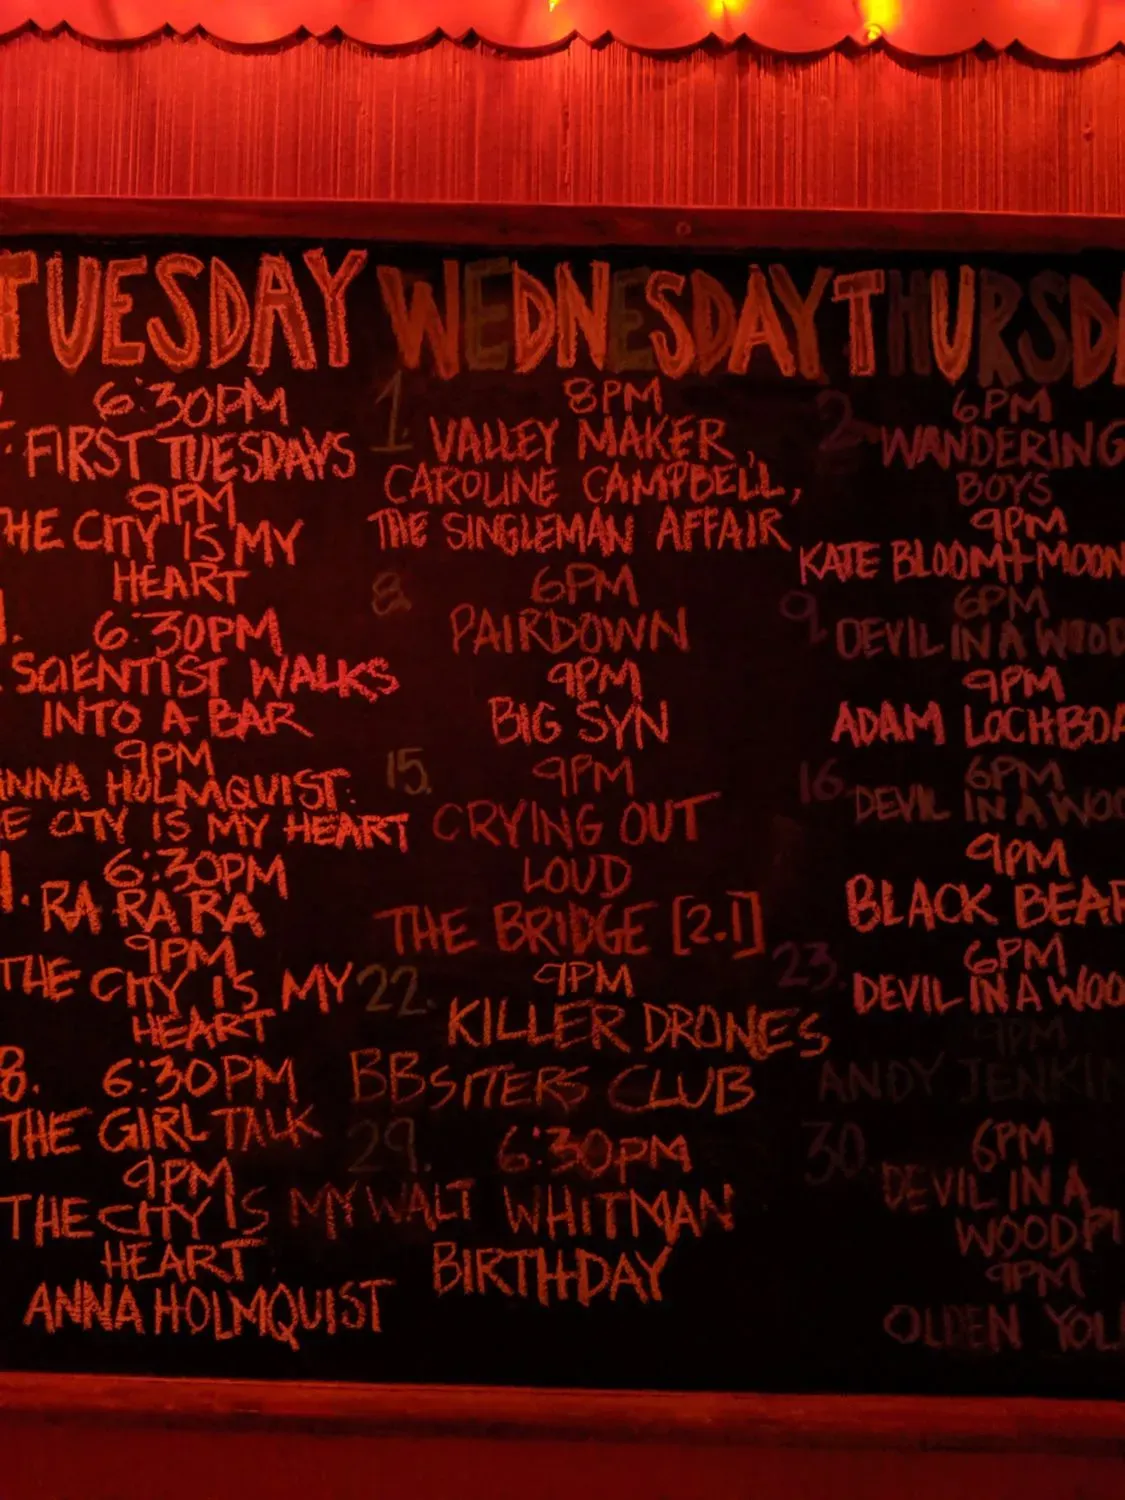 TUESDAY
6:30PM
FIRST TUESDAYS
9PM
THE CITY IS MY
HEART
6:30PM
SCIENTIST WALKS
INTO A BAR
9PM
ANNA HOLMQUIST:
THE CITY IS MY HEART
6:30PM
RA RA RA
9PM
THE CITY IS MY
HEART
8. 6:30PM
THE GIRL TALK
9PM
THE CITY IS MY
HEART
ANNA HOLMQUIST
WEDNESDAY
1. 8PM
VALLEY MAKER,
CAROLINE CAMPBELL,
THE SINGLEMAN AFFAIR
8. 6PM
PAIRDOWN
9PM
BIG SYN
15. 9PM
CRYING OUT
LOUD
THE BRIDGE [2.1]
22. 9PM
KILLER DRONES
BBSITERS CLUB
29. 6:30PM
WALT WHITMAN
BIRTHDAY
THURSDA
2. 6PM
WANDERING
BOYS
9PM
KATE BLOOM + MOON
9. 6PM
DEVIL IN A WOOD
9PM
ADAM LOCHBOA
16. 6PM
DEVIL IN A WOO
9PM
BLACK BEAR
23. 6PM
DEVIL IN A WOO
9PM
ANDY JENKIN
30. 6PM
DEVIL IN A
WOODPI
9PM
OLDEN YOL